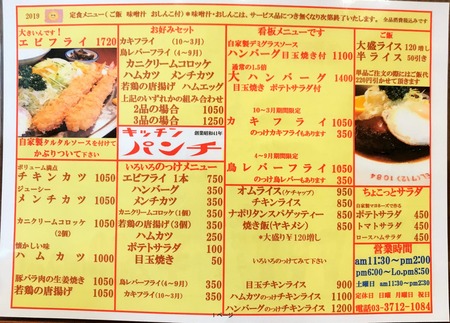 2019
定食メニュー(ご飯 味噌汁 おしんこ付) *味噌汁・おしんこは、サービス品につき無くなり次第終了いたします。
全品消費税込みです
大きいんです!
エビフライ 1720
自家製タルタルソースを付けて
かぶりついて下さい
ボリューム満点
チキンカツ 1050
ジューシー
メンチカツ 1050
カニクリームコロッケ 1050
(2個)
懐かしい味
ハムカツ 1000
豚バラ肉の生姜焼き 1050
若鶏の唐揚げ 1050
お好みセット
カキフライ (10〜3月)
鳥レバーフライ (4〜9月)
カニクリームコロッケ
ハムカツ メンチカツ
若鶏の唐揚げ ハムエッグ
上記のいずれかの組み合わせ
2品の場合 1050
3品の場合 1250
キッチン
創業昭和41年
パンチ
いろいろのっけメニュー
エビフライ 1本 750
ハンバーグ 350
メンチカツ 350
カニクリームコロッケ(1個) 350
若鶏の唐揚げ(3個) 350
ハムカツ 250
ポテトサラダ 100
目玉焼き 50
鳥レバーフライ(4〜9月) 350
カキフライ(10〜3月) 350
看板メニューです
自家製デミグラスソース
ハンバーグ 目玉焼き付 1100
通常の1.5倍
大ハンバーグ 1400
目玉焼き ポテトサラダ付
10〜3月期間限定
カキフライ 1050
のっけカキフライもあります 350
4〜9月期間限定
鳥レバーフライ 1050
のっけ鳥レバーもあります 350
オムライス(ケチャップ) 950
チキンライス 850
ナポリタンスパゲッティー 850
焼き飯(ヤキメシ) 850
*大盛り¥120増し
いろいろのせてみて下さい
目玉チキンライス 900
ハムカツのっけチキンライス 1100
ハンバーグのっけチキンライス 1200
ご飯
大盛ライス 120増し
半ライス 50引き
単品ご注文の際にはご飯代
220円引かせて頂きます
ちょこっとサラダ
自家製マヨネーズで作る
ポテトサラダ 450
トマトサラダ 450
ロースハムサラダ 450
営業時間
am11:30〜pm2:00
pm6:00〜Lo.pm8:50
土曜日 am11:30〜pm2:30
定休日 日曜 月曜昼 祝日
電話 03-3712-1084
1ページ